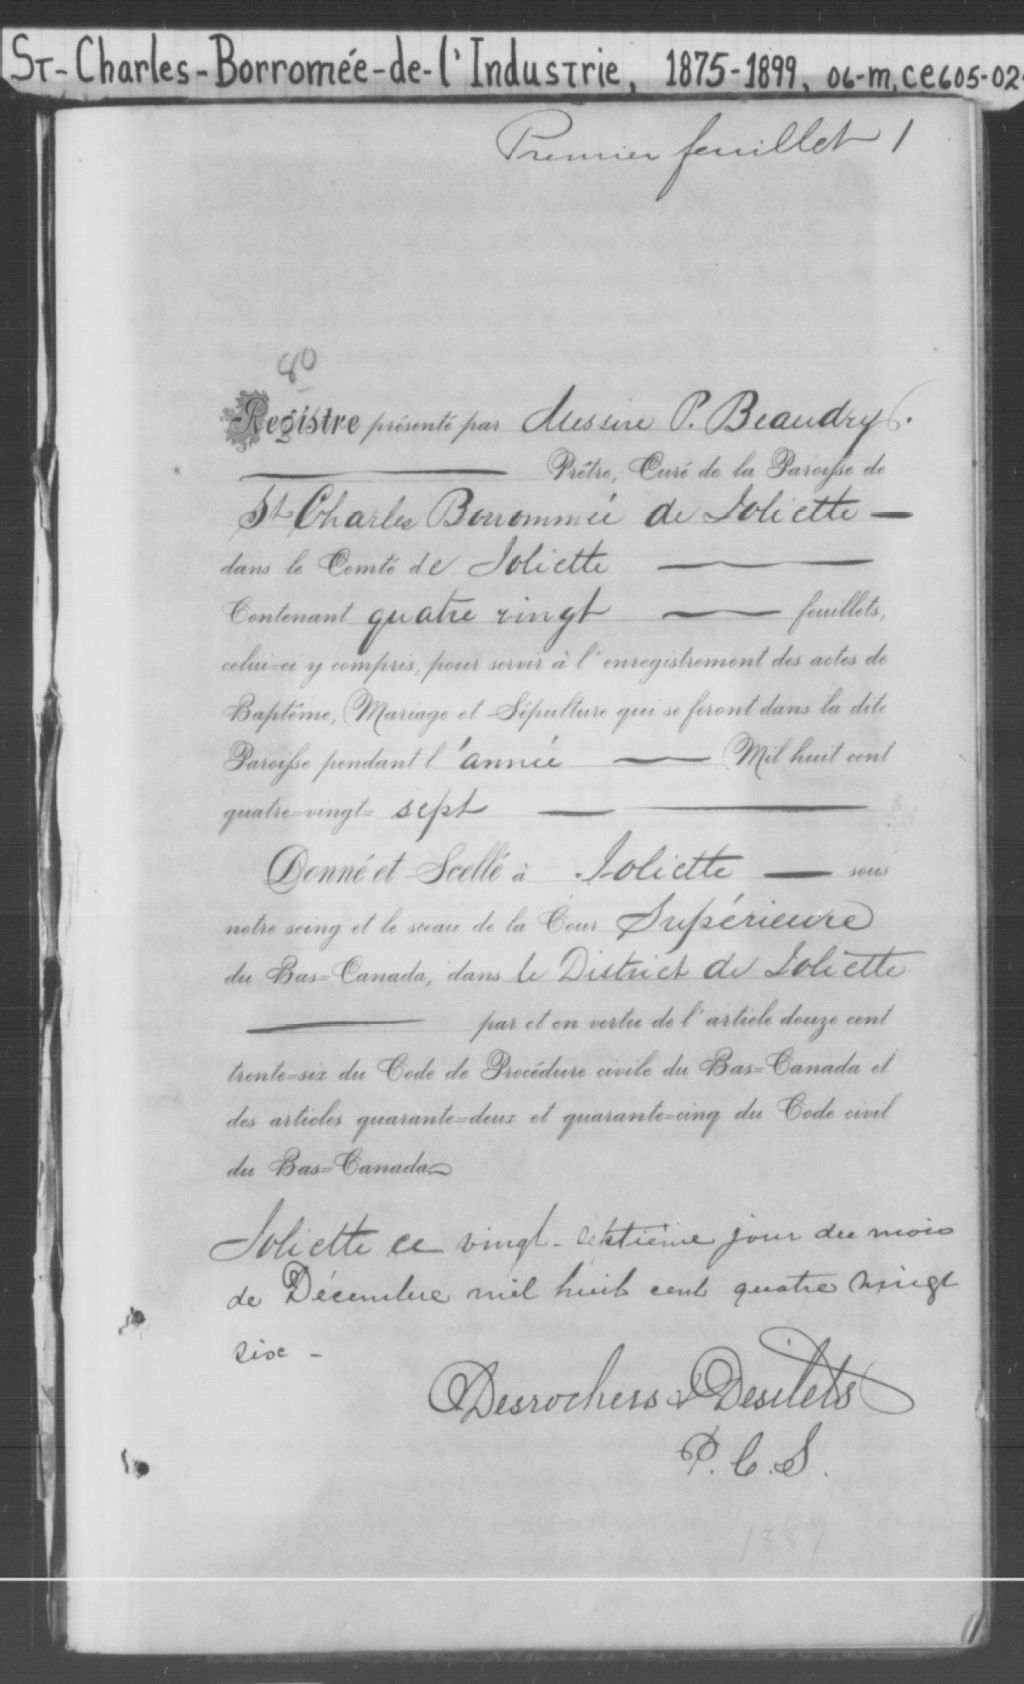 ST-Charles-Borromée-de-l'Industrie, 1875-1899, 06-m, CE605-02
Premier feuillet 1
80
Registre présenté par Messire P. Beaudry
Prêtre, Curé de la Paroisse de
St Charles Borrommée de Joliette
dans le Comté de Joliette
Contenant quatre vingt feuillets,
celui=ci y compris, pour servir à l'enregistrement des actes de
Baptême, Mariage et Sépulture qui se feront dans la dite
Paroisse pendant l'année Mil huit cent
quatre=vingt= sept
Donné et Scellé à Joliette sous
notre seing et le sceau de la Cour Supérieure
du Bas=Canada, dans le District de Joliette
par et en vertu de l'article douze cent
trente=six du Code de Procédure civile du Bas=Canada et
des articles quarante=deux et quarante=cinq du Code civil
du Bas=Canada
Joliette ce vingt-septième jour du mois
de Décembre mil huit cent quatre vingt
six -
Desrochers & Desilets
P. C. S.
1887